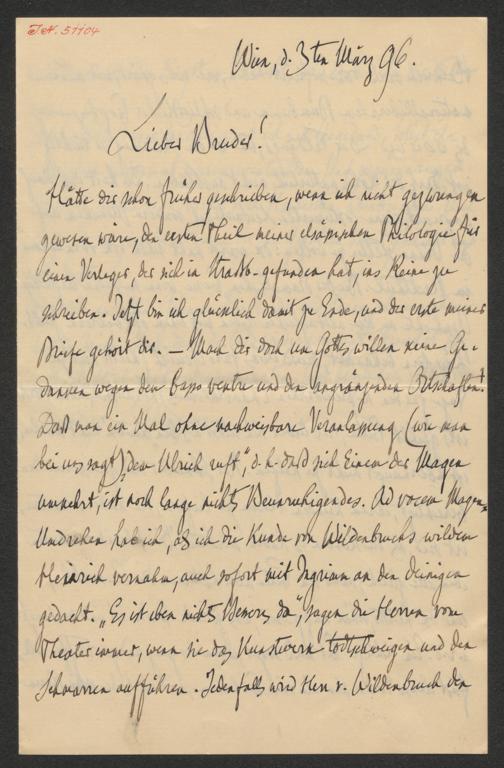 J.N. 57704
Wien, d. 3ten März 96.
Lieber Bruder!
Hätte dir schon früher geschrieben, wenn ich nicht gezwungen
gewesen wäre, den ersten Theil meiner elsässischen Philologie für
einen Verleger, der sich in Strassb. gefunden hat, ins Reine zu
schreiben. Jetzt bin ich glücklich damit zu Ende, und der erste meiner
Briefe gehört dir. — Mach dir doch um Gottes willen keine Ge-
danken wegen dem Basso ventre und den angränzenden Ortschaften!
Daß man ein Mal ohne nachweisbare Veranlassung (wie man
bei uns sagt) „dem Ulrich ruft“, d.h. dass sich Einem der Magen
umkehrt, ist noch lange nichts Beunruhigendes. Ad vocem Magen-
Umdrehen hab ich, als ich die Kunde von Wildenbruchs wildem
Heinrich vernahm, auch sofort mit Ingrimm an den deinigen
gedacht. „Es ist eben nichts Besseres da“, sagen die Herren vom
Theater immer, wenn sie das Kunstwerk todtschweigen und den
Schmarren aufführen. Jedenfalls wird Herr v. Wildenbruch den